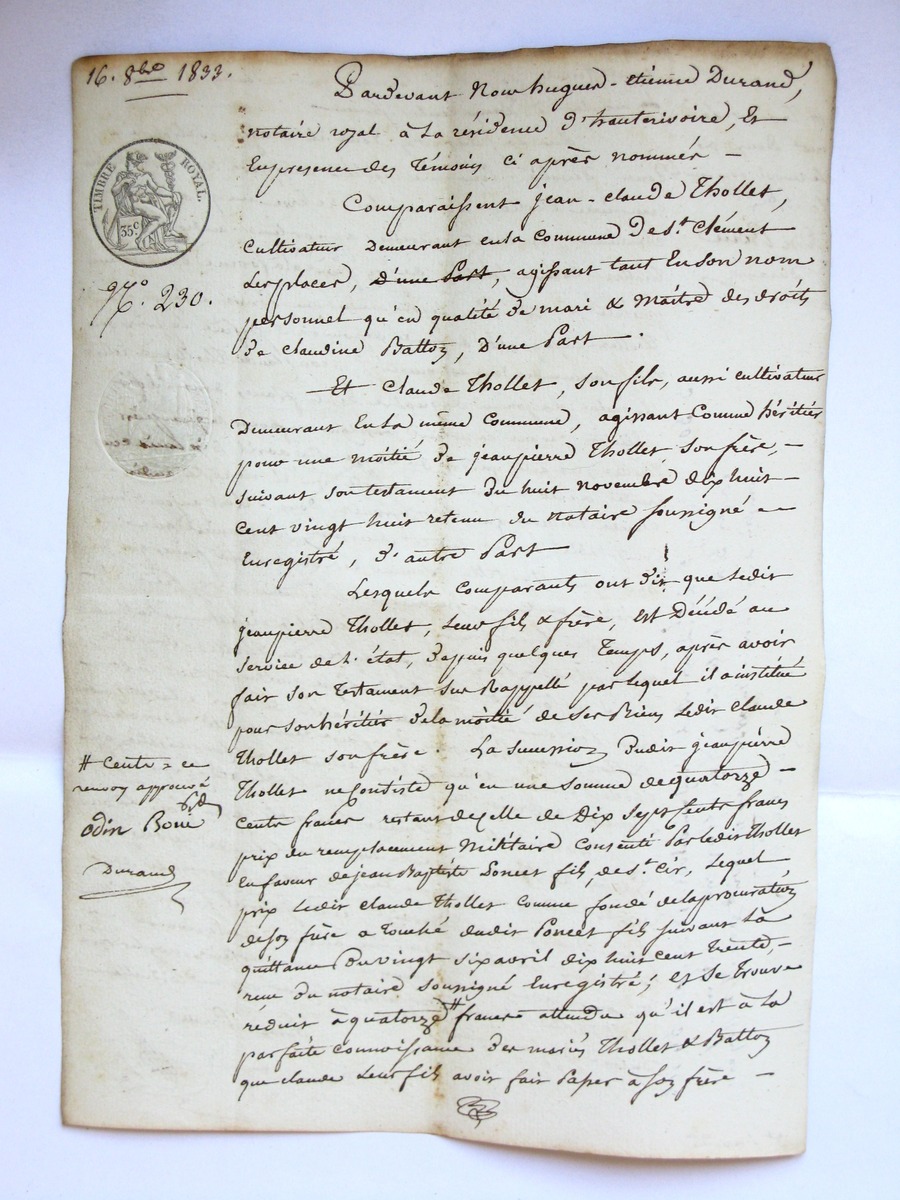 16. 8bre 1833.
TIMBRE ROYAL.
35c
No. 230.
Pardevant Nous hugues-étienne Durand,
notaire royal à la résidence d'hauterivoire, Et
En presence des Témoins ci après nommés -
Comparaissent jean-claude Thollet,
cultivateur Demeurant en la Commune De St. Clément
Les places, d'une Part, agissant tant En son nom
personnel qu'en qualité De mari & Maître des droits
De claudine Batton, D'une Part.
Et Claude Thollet, son fils, aussi cultivateur
Demeurant En la même Commune, agissant Comme héritier
pour une moitié De jeanpierre Thollet son frère, -
suivant son testament Du huit novembre dix huit -
Cent vingt huit retenu Du notaire soussigné
Enregistré, D'autre Part
Lesquels comparants ont dit que Ledit
jeanpierre Thollet, leur fils & frère, est Décédé au
service de l'état, Depuis quelques Temps, après avoir
fait son Testament sus Rappellé par lequel il a institué
pour son héritier De la moitié de ses Biens Ledit Claude
Thollet son frère. La succession Dudit jeanpierre
Thollet ne Consiste qu'en une somme de quatorze -
Cents francs restant de celle de Dix Sept Cents francs
prix du remplacement Militaire Consenti Par Ledit Thollet
En faveur de jean Baptiste Poncet fils, de St. Cir, Lequel
prix Ledit Claude Thollet Comme fondé de la procuration
de son frère a Touché dudit Poncet fils suivant La
quittance Du vingt six avril dix huit Cent Trente, -
reçue Du notaire soussigné Enregistré; et Se Trouve
réduit à quatorze # francs attendu qu'il est à La
parfaite Connoissance Des mariés Thollet & Batton
que claude Leur fils avoit fait Passer à son frère -
# Cents = ce
renvoi approuvé
odin Boni
Durand